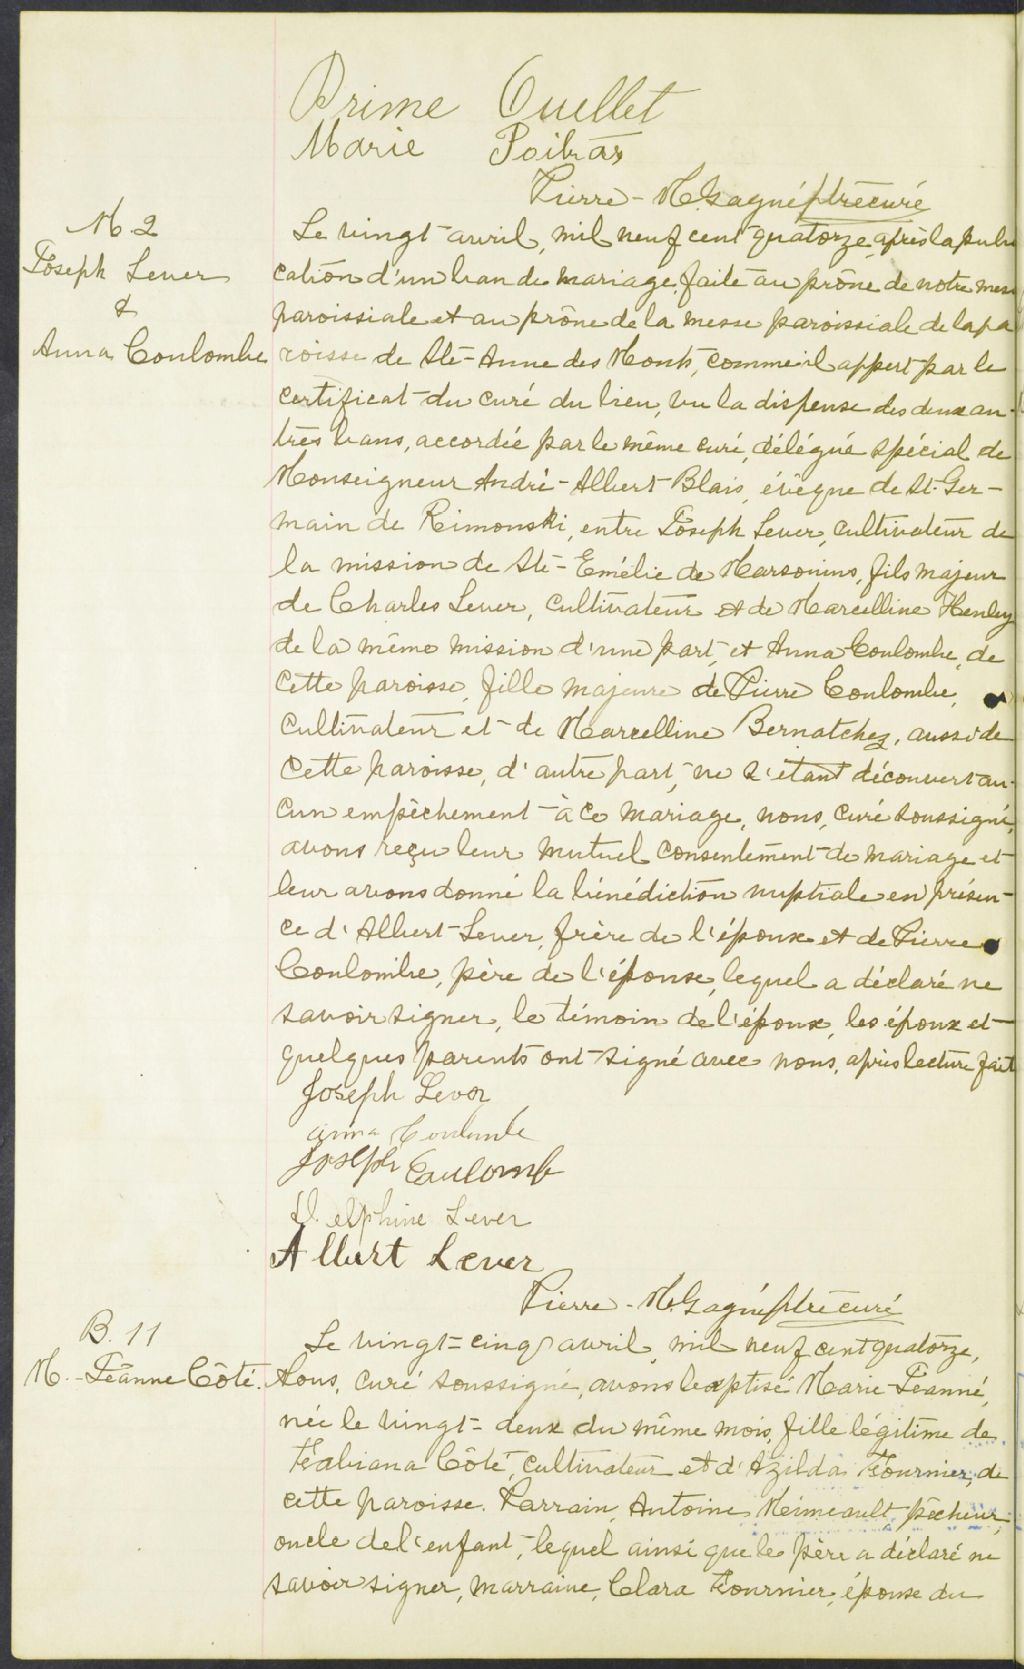 Prime Ouellet
Marie Poitras
Pierre - M. Gagné ptre curé
M 2
Joseph Lever
&
Anna Coulombe
Le vingt avril, mil neuf cent quatorze, après la publi
cation d'un ban de mariage, faite au prône de notre messe
paroissiale et au prône de la messe paroissiale de la pa
roisse de Ste-Anne des Monts, comme il appert par le
certificat du curé du lieu, vu la dispense des deux au-
tres bans, accordée par le même curé, délégué spécial de
Monseigneur André-Albert Blais, évêque de St. Ger-
main de Rimouski, entre Joseph Lever, cultivateur de
la mission de Ste-Emélie de Marsouins, fils majeur
de Charles Lever, cultivateur et de Marcelline Henley
de la même mission d'une part, et Anna Coulombe, de
cette paroisse, fille majeure de Pierre Coulombe,
cultivateur et de Marcelline Bernatchez, aussi de
cette paroisse, d'autre part, ne s'étant découvert au-
cun empêchement à ce mariage, nous, curé soussigné,
avons reçu leur mutuel consentement de mariage et
leur avons donné la bénédiction nuptiale en présen-
ce d'Albert Lever, frère de l'époux et de Pierre
Coulombe, père de l'épouse, lequel a déclaré ne
savoir signer, le témoin de l'époux, les époux et
quelques parents ont signé avec nous, après lecture fait
Joseph Lever
anna Coulombe
Joseph Coulomb
Delphine Lever
Albert Lever
Pierre - M. Gagné ptre curé
B. 11
M. - Jeanne Côté.
Le vingt-cinq avril, mil neuf cent quatorze,
Nous, curé soussigné, avons baptisé Marie Jeanne,
née le vingt-deux du même mois, fille légitime de
Fabiana Côté, cultivateur et d'Azilda Fournier, de
cette paroisse. Parrain, Antoine Mimeault, pêcheur,
oncle de l'enfant, lequel ainsi que le père a déclaré ne
savoir signer, marraine, Clara Fournier, épouse du